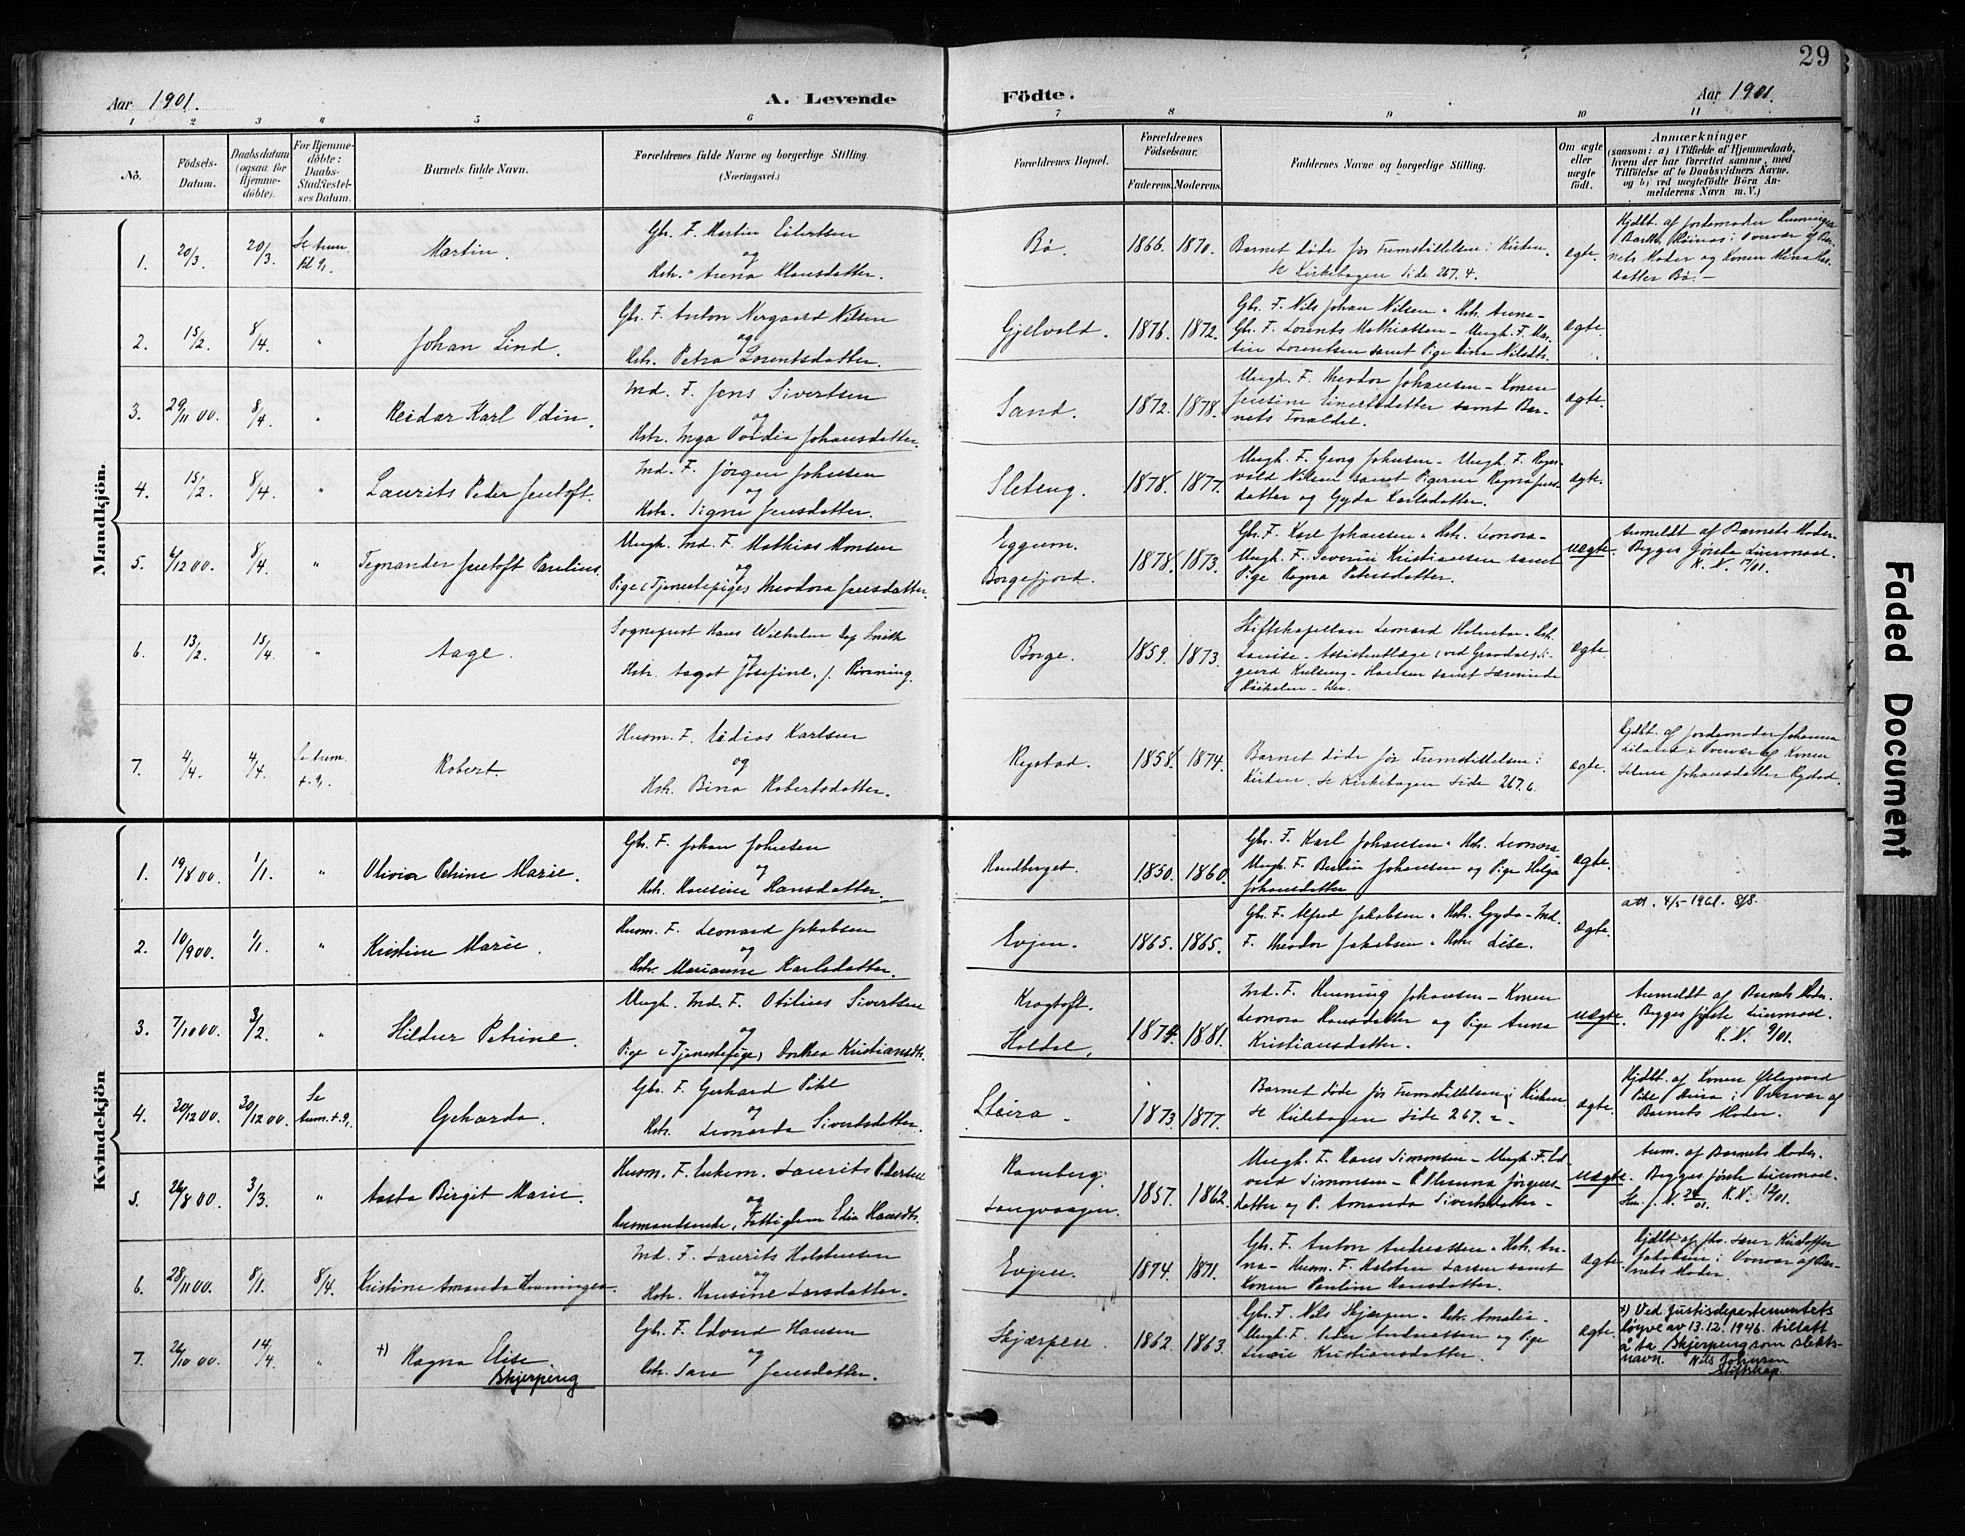 29
Aar 1901. A. Levende Födte. Aar 1901.
1 2 3 4 5 6 7 8 9 10 11
No. Födsels-Datum. Daabsdatum (ogsaa for Hjemmedöbte). For Hjemmedöbte: Daabs-Stadfæstelses Datum. Barnets fulde Navn. Forældrenes fulde Navne og borgerlige Stilling. (Næringsvei.) Forældrenes Bopæl. Forældrenes Födselsaar. Faderens. Moderens. Faddernes Navne og borgerlige Stilling. Om ægte eller uægte födt. Anmærkninger (saasom: a) i Tilfælde af Hjemmedaab, hvem der har forrettet samme, med Tilföielse af to Daabsvidners Navne. og b) ved uægtefödte Börn Anmelderens Navn m. V.)
Mandkjön.
1. 20/3. 20/3. Se Anm. Martin. Gbr. F. Martin Eilertsen
og
Hstr. Anna Klausdatter. Bø. 1866. 1870. Barnet døde før Fremstillelsen i Kirken.
Se Kirkebogen Side 267. 4. ægte.
2. 15/2. 8/4. " Johan Lind. Gbr. F. Anton Norgaard Nilsen
og
Hstr. Petra Lorentsdatter. Gjelvold. 1876. 1872. Gbr. F. Nils Johan Nilsen. Hstr. Anna-
Gbr. F. Lorents Mathiassen - Ungk. F. Mar-
tin Lorentsen samt Pige Nilsdtr. ægte.
3. 29/11 00. 8/4. " Reidar Karl Odin. Ind. F. Jens Sivertsen
og
Hstr. Inga Johansdatter. Sand. 1872. 1878. Ungk. F. Theodor Johansen - Konen
Jensine Einertsdatter samt Bar-
nets Forældre. ægte.
4. 15/2. 8/4. " Laurits Peder Jentoft. Ind. F. Jørgen Johnsen
og
Hstr. Signe Jensdatter. Sleteng. 1878. 1877. Ungk. F. Georg Johnsen - Ungk. F. Ragn-
vald Nilsen samt Pigerne Ragna Jens-
datter og Gyda Karlsdatter. ægte.
5. 6/12 00. 8/4. " Tegnander Jentoft Paulius. Ungk. Ind. F. Mathias Monsen
og
Pige (Tjenestepige) Theodora Jensdatter. Eggum.
Borgefjord. 1878. 1873. Gbr. F. Karl Johansen. Hstr. Leonora-
Ungk. F. Severin Kristiansen samt
Pige Ragna Petersdatter. uægte. Anmeldt af Barnets Moder-
Begges første Leiermaal.
6. 13/2. 15/4. " Aage. Sogneprest Hans Wilhelm Smith
og
Hstr. Aagot Josefine, f. Rönning. Borge. 1859. 1873. Stiftskapellan Leonard Hstr.
Louise - Assistentlæge (ved Gravdal)
samt Lærerinde ægte.
7. 4/4. 4/4. Se Anm. Robert. Husm. F. Karlsen
og
Hstr. Bina Robertsdatter. Rystad. 1858. 1874. Barnet døde før Fremstillelsen i
Kirken. Se Kirkebogen Side 267. 6. ægte. Hjdbt. af Jordemoder Johanna
i Overvær af Konen
Johansdatter Rystad.
Kvindekjön
1. 19/8 00. 1/1. " Olivia Petrine Marie. Gbr. F. Johan Johnsen
og
Hstr. Hansine Hansdatter. Rundberget. 1850. 1860. Gbr. F. Karl Johansen. Hstr. Leonora
Ungk. F. Berlin Johansen og Pige Helga
Johansdatter ægte.
2. 10/9 00. 1/1. " Kristine Marie. Husm. F. Leonard Jakobsen
og
Hstr. Marianne Karlsdatter. Evjen. 1865. 1865. Gbr. F. Alfred Jakobsen. Hstr. Gyda - Ind.
F. Theodor Jakobsen. Hstr. Lise. ægte. att. 4/5-1961. 8/8.
3. 7/10 00. 3/2. " Hildur Petrine. Ungk. Ind. F. Otilius Sivertsen
og
Pige (Tjenestepige) Dorthea Kristiansdtr. Krogtoft.
Holdal. 1874. 1881. Ind. F. Henning Johansen - Konen
Leonora Hansdatter og Pige Anna
Kristiansdatter. uægte. Anmeldt af Barnets Moder.
Begges første Leiermaal.
4. 30/12 00. 30/12 00. Se Anm. Geharda. Gbr. F. Gerhard Pihl
og
Hstr. Leonarda Sivertsdatter. Steira - 1873. 1877. Barnet døde før Fremstillelsen i Kirken
Se Kirkebogen Side 267. ægte. Hjdbt. af Konen
Pihl Steira i Overvær af
Barnets Moder.
5. 26/8 00. 3/3. " Aasta Birgit Marie. Husm. F. Enkem. Laurits Pedersen
og
Husmandsenke, Fattiglem Edia Hansdtr. Ramberg.
Langvaagen. 1857. 1862. Ungk. F. Hans Simonsen - Ungk. F. Ed-
vard Simonsen - P. Jørgens-
datter og P. Amanda Sivertsdatter - uægte. Anm. af Barnets Moder.
Begges første Leiermaal.
6. 28/11 00. 8/1. 8/4. Kristine Amanda Henningea. Ind. F. Laurits Holstensen
og
Hstr. Hansine Larsdatter. Evjen. 1874. 1871. Gbr. F. Anton Andreassen. Hstr. An-
na - Husm. F. Holsten Larsen samt
Konen Pauline Hansdatter. ægte. Hjdbt. af Kristoffer
Jakobsen i Overvær af Bar-
nets Moder.
7. 26/10 00. 14/4. " +) Ragna Elise. Skjerpeng Gbr. F. Edvard Hansen
og
Hstr. Sara Jensdatter. Skjærpen. 1862. 1863. Gbr. F. Nils Skjærpen. Hstr. Amalia-
Ungk. F. Peder Andreassen og Pige
Kristiansdatter. ægte. +) Ved Justisdepartementets
løyve av 13.12.1946 tillatt
å ta Skjerpeng som slekts-
navn. Nils Johnsen
Faded Document